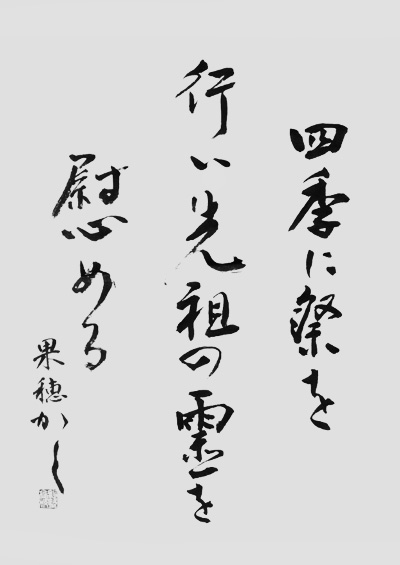 四季に祭を
行い先祖の霊を
慰める
果穂かく